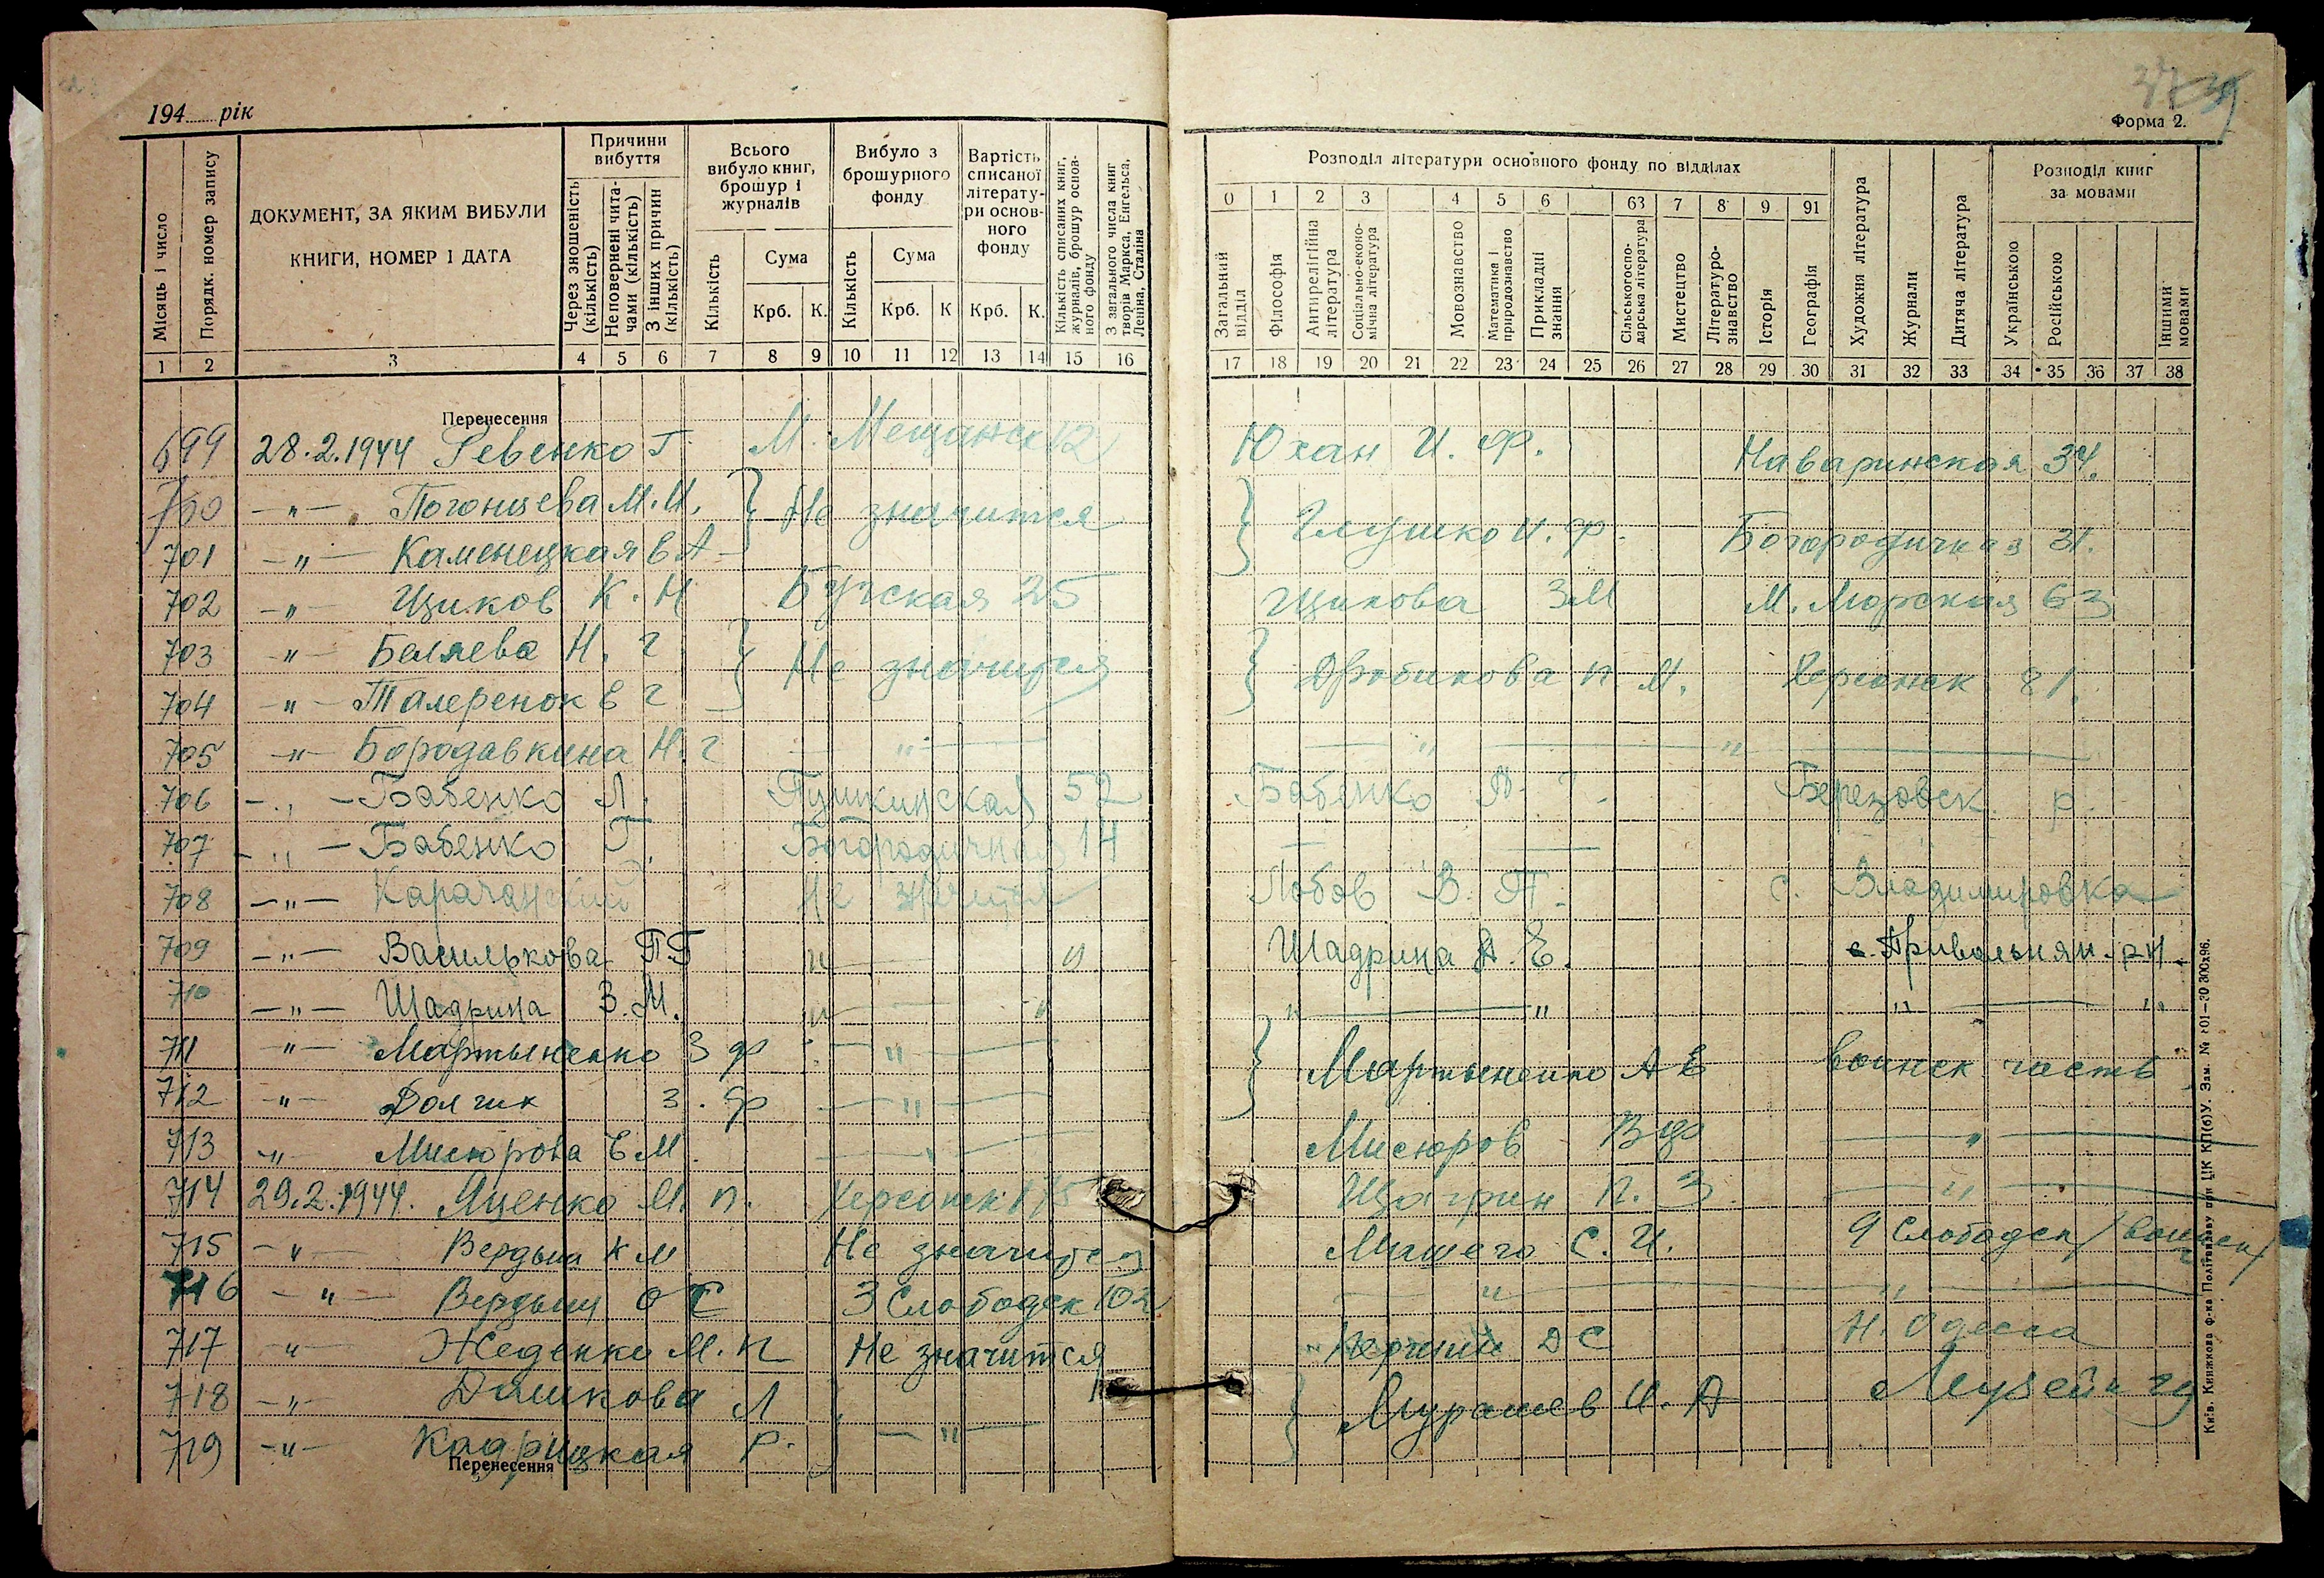 194 рік
37 39
Форма 2.
Місяць і число
Порядк. номер запису
ДОКУМЕНТ, ЗА ЯКИМ ВИБУЛИ
КНИГИ, НОМЕР І ДАТА
Причини вибуття
Через зношеність (кількість)
Неповернені читачами (кількість)
З інших причин (кількість)
Всього вибуло книг, брошур і журналів
Кількість
Сума
Крб. К.
Вибуло з брошурного фонду
Кількість
Сума
Крб. К
Вартість списаної літератури основного фонду
Крб. К.
Кількість списаних книг, журналів, брошур основного фонду
З загального числа книг творів Маркса, Енгельса, Леніна, Сталіна
1 2 3 4 5 6 7 8 9 10 11 12 13 14 15 16
Розподіл літератури основного фонду по відділах
0 1 2 3 4 5 6 63 7 8 9 91
Загальний відділ
Філософія
Антирелігійна література
Соціально-економічна література
Мовознавство
Математика і природознавство
Прикладні знання
Сільськогосподарська література
Мистецтво
Літературознавство
Історія
Географія
Художня література
Журнали
Дитяча література
Розподіл книг за мовами
Українською
Російською
Іншими мовами
17 18 19 20 21 22 23 24 25 26 27 28 29 30 31 32 33 34 35 36 37 38
Перенесення
699 28.2.1944 Ревенко Г М. Мещанск 12 Юхан И. Ф. Наваринская 34.
700 -"- Погонцева М.И. } Не значится } Глушко И. Ф. Богородичная 31.
701 -"- Каменецкая В А
702 -"- Щиков К. Н Бугская 25 Щикова З М М. Морская 63
703 -"- Беляева Н. Г } Не значится } Дробикова П. М. Херсонск 81.
704 -"- Талеренок Е Г
705 -"- Бородавкина Н. Г -"- -"- -"-
706 -"- Бабенко Л. Пушкинская 52 Бабенко Березовск р.
707 -"- Бабенко Г. Богородичная 14
708 -"- Не значится Лобов В. П. с. Владимировка
709 -"- Василькова П.Г " " Шадрина А. Е. с. Привольнян. р-н.
710 -"- Шадрина З. М. " " " " " "
711 -"- Мартыненко З Ф -"- } Мартыненко А Е воинск часть
712 -"- Долгик З. Ф -"-
713 -"- Мисюрова Е М. -"- Мисюров В Ф -"-
714 29.2.1944. Яценко М. П. Херсонск 115 П. З. -"-
715 -"- Вердыш К М Не значится С. И. 9 Слободск /воинск/
716 -"- Вердыш О Е 3 Слободск 102 -"- -"-
717 -"- Жеденко М. П Не значится Д С Н. Одесса
718 -"- Дашкова Л } -"- } Мурашев И. А
719 -"- Кадрицкая Р.
Перенесення
Київ. Книжкова ф-ка Політвидаву при ЦК КП(б)У. Зам. № 801—20 300х96.